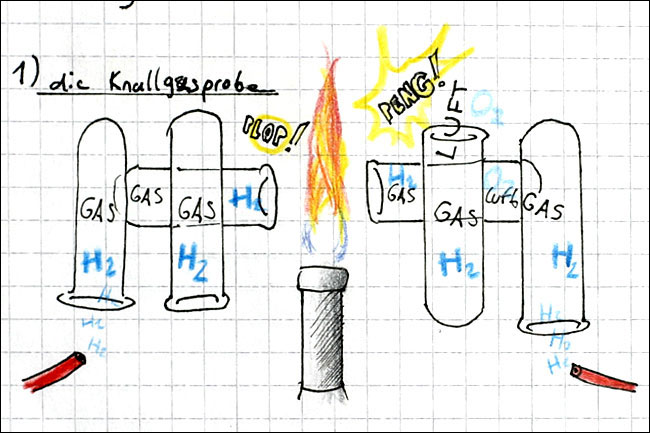 1) die Knallgasprobe
PLOP!
PENG!
LUFT
O2
GAS
GAS
GAS
H2
H2
H2
H2
H2
H2
H2
GAS
GAS
Luft
GAS
O2
H2
H2
H2
H2